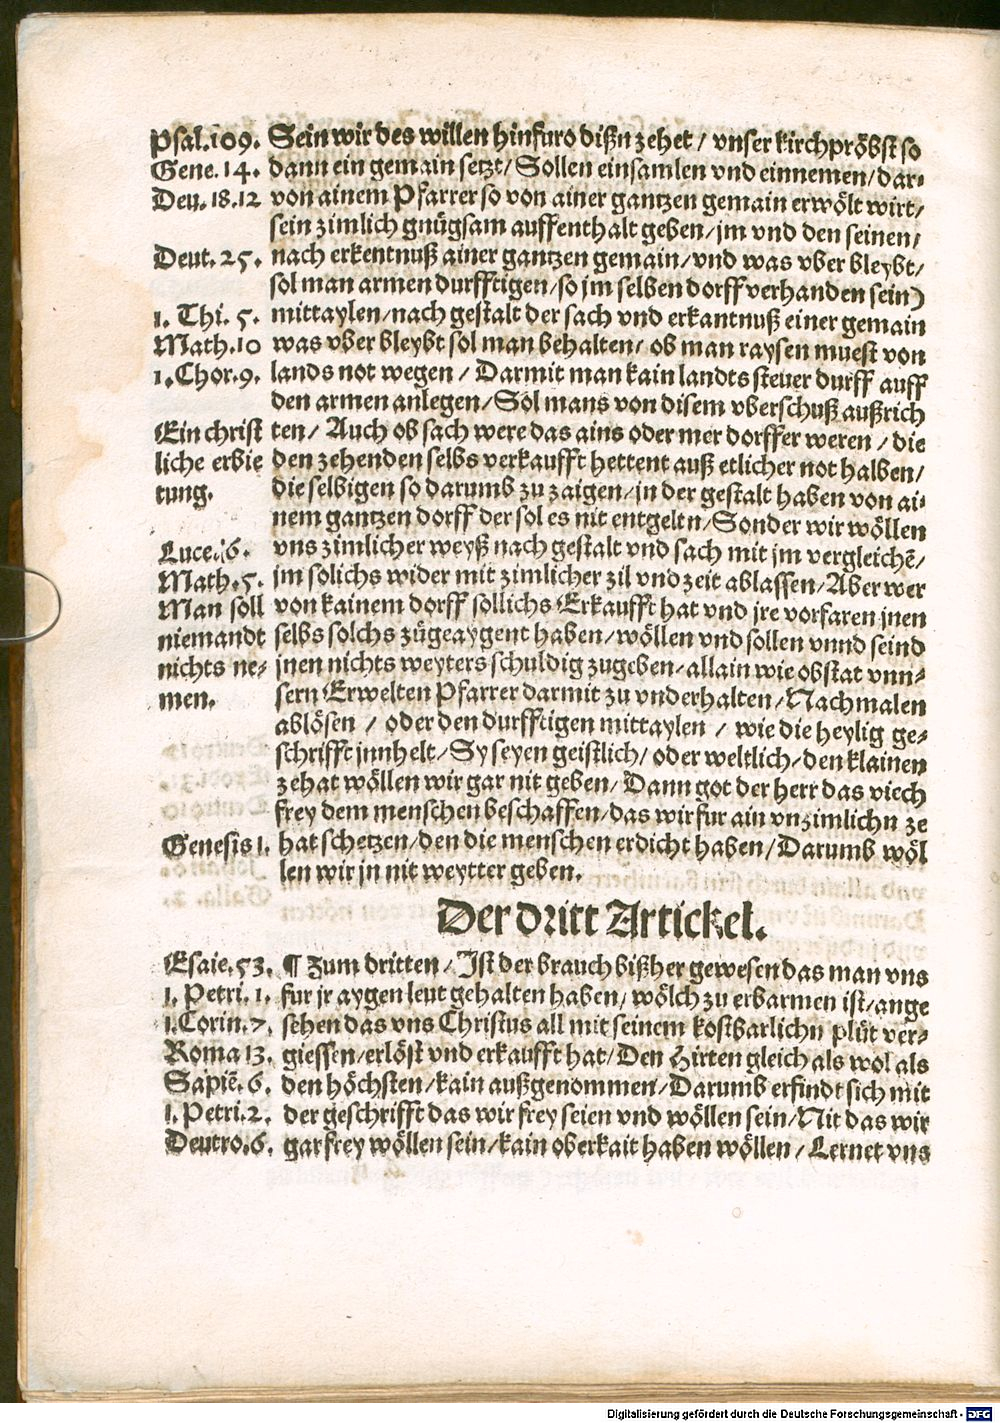 Psal.109. Sein wir des willen hinfuro disn zehet / vnser kirchpröbst so
Gene.14. dann ein gemain setzt/ Sollen einsamlen vnd einnemen/dar⸗
Deu.18.12 von ainem Pfarrer so von ainer gantzen gemain erwölt wirt/
sein zimlich gnügsam auffenthalt geben/jm vnd den seinen/
Deut.25. nach erkentnuß ainer gantzen gemain/vnd was vber bleybt/
sol man armen durfftigen/so jm selben dorff verhanden sein)
1. Thi. 5. mittaylen/nach gestalt der sach vnd erkantnuß einer gemain
Math.10 was vber bleybt sol man behalten/ ob man raysen muest von
1.Chor.9. lands not wegen / Darmit man kain landts steuer durff auff
den armen anlegen/Sol mans von disem vberschuß außrich
Ein christ ten/ Auch ob sach were das ains oder mer dorffer weren / die
liche erbie den zehenden selbs verkaufft hettent auß etlicher not halben/
tung. die selbigen so darumb zu zaigen/in der gestalt haben von ai⸗
nem gantzen dorff der sol es nit entgeltn/Sonder wir wöllen
Luce.6. vns zimlicher weyß nach gestalt vnd sach mit jm vergleichē/
Math.5. jm solichs wider mit zimlicher zil vnd zeit ablassen/Aber wer
Man soll von kainem dorff sollichs Erkaufft hat vnd jre vorfaren jnen
niemandt selbs solchs zügeaygent haben/wöllen vnd sollen vnnd seind
nichts ne⸗ jnen nichts weyters schuldig zugeben/allain wie obstat vnn⸗
men. sern Erwelten Pfarrer darmit zu vnderhalten/Nachmalen
ablösen / oder den durfftigen mittaylen / wie die heylig ge⸗
schrifft jnnhelt/Sy seyen geistlich/ oder weltlich/den klainen
zehat wöllen wir gar nit geben/Dann got der herr das viech
frey dem menschen beschaffen/das wir fur ain vnzimlichn ze
Genesis 1. hat schetzen/den die menschen erdicht haben/Darumb wöl
len wir jn nit weytter geben.
Der dritt Artickel.
Esaie.53. ¶ Zum dritten/Ist der brauch bißher gewesen das man vns
1. Petri. 1. fur jr aygen leut gehalten haben/wölch zu erbarmen ist/ange
1.Corin.7. sehen das vns Christus all mit seinem kostbarlichn plüt ver⸗
Roma 13. giessen/erlößt vnd erkaufft hat/Den Hirten gleich als wol als
Sapiē.6. den höchsten/kain außgenommen/Darumb erfindt sich mit
1.Petri.2. der geschrifft das wir frey seien vnd wöllen sein/Nit das wir
Deutro.6. gar frey wöllen sein/kain oberkait haben wöllen/Lernet vns
Digitalisierung gefördert durch die Deutsche Forschungsgemeinschaft - DFG